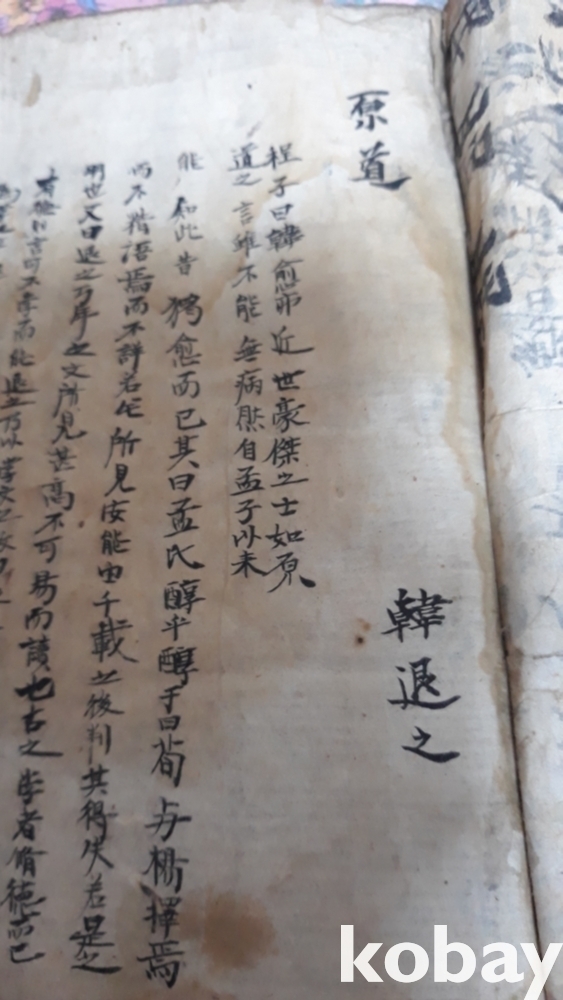 原道
韓退之
程子曰韓愈亦近世豪傑之士如原
道之言雖不能無病然自孟子以来
能知此者獨愈而已其曰孟氏醇乎醇于曰荀与楊擇焉
而不精語焉而不詳若 所見安能由千載之後判其得失若是之
明也又曰退之万年之文所見甚高不可易而讀也古之学者脩徳而已
有徳 言可不学而能退之乃以学文之故
kobay